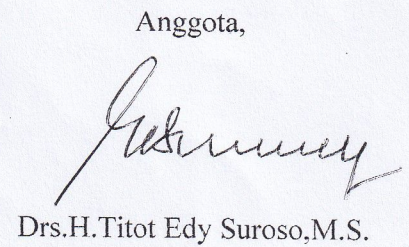 Anggota,
Drs.H.Titot Edy Suroso,M.S.